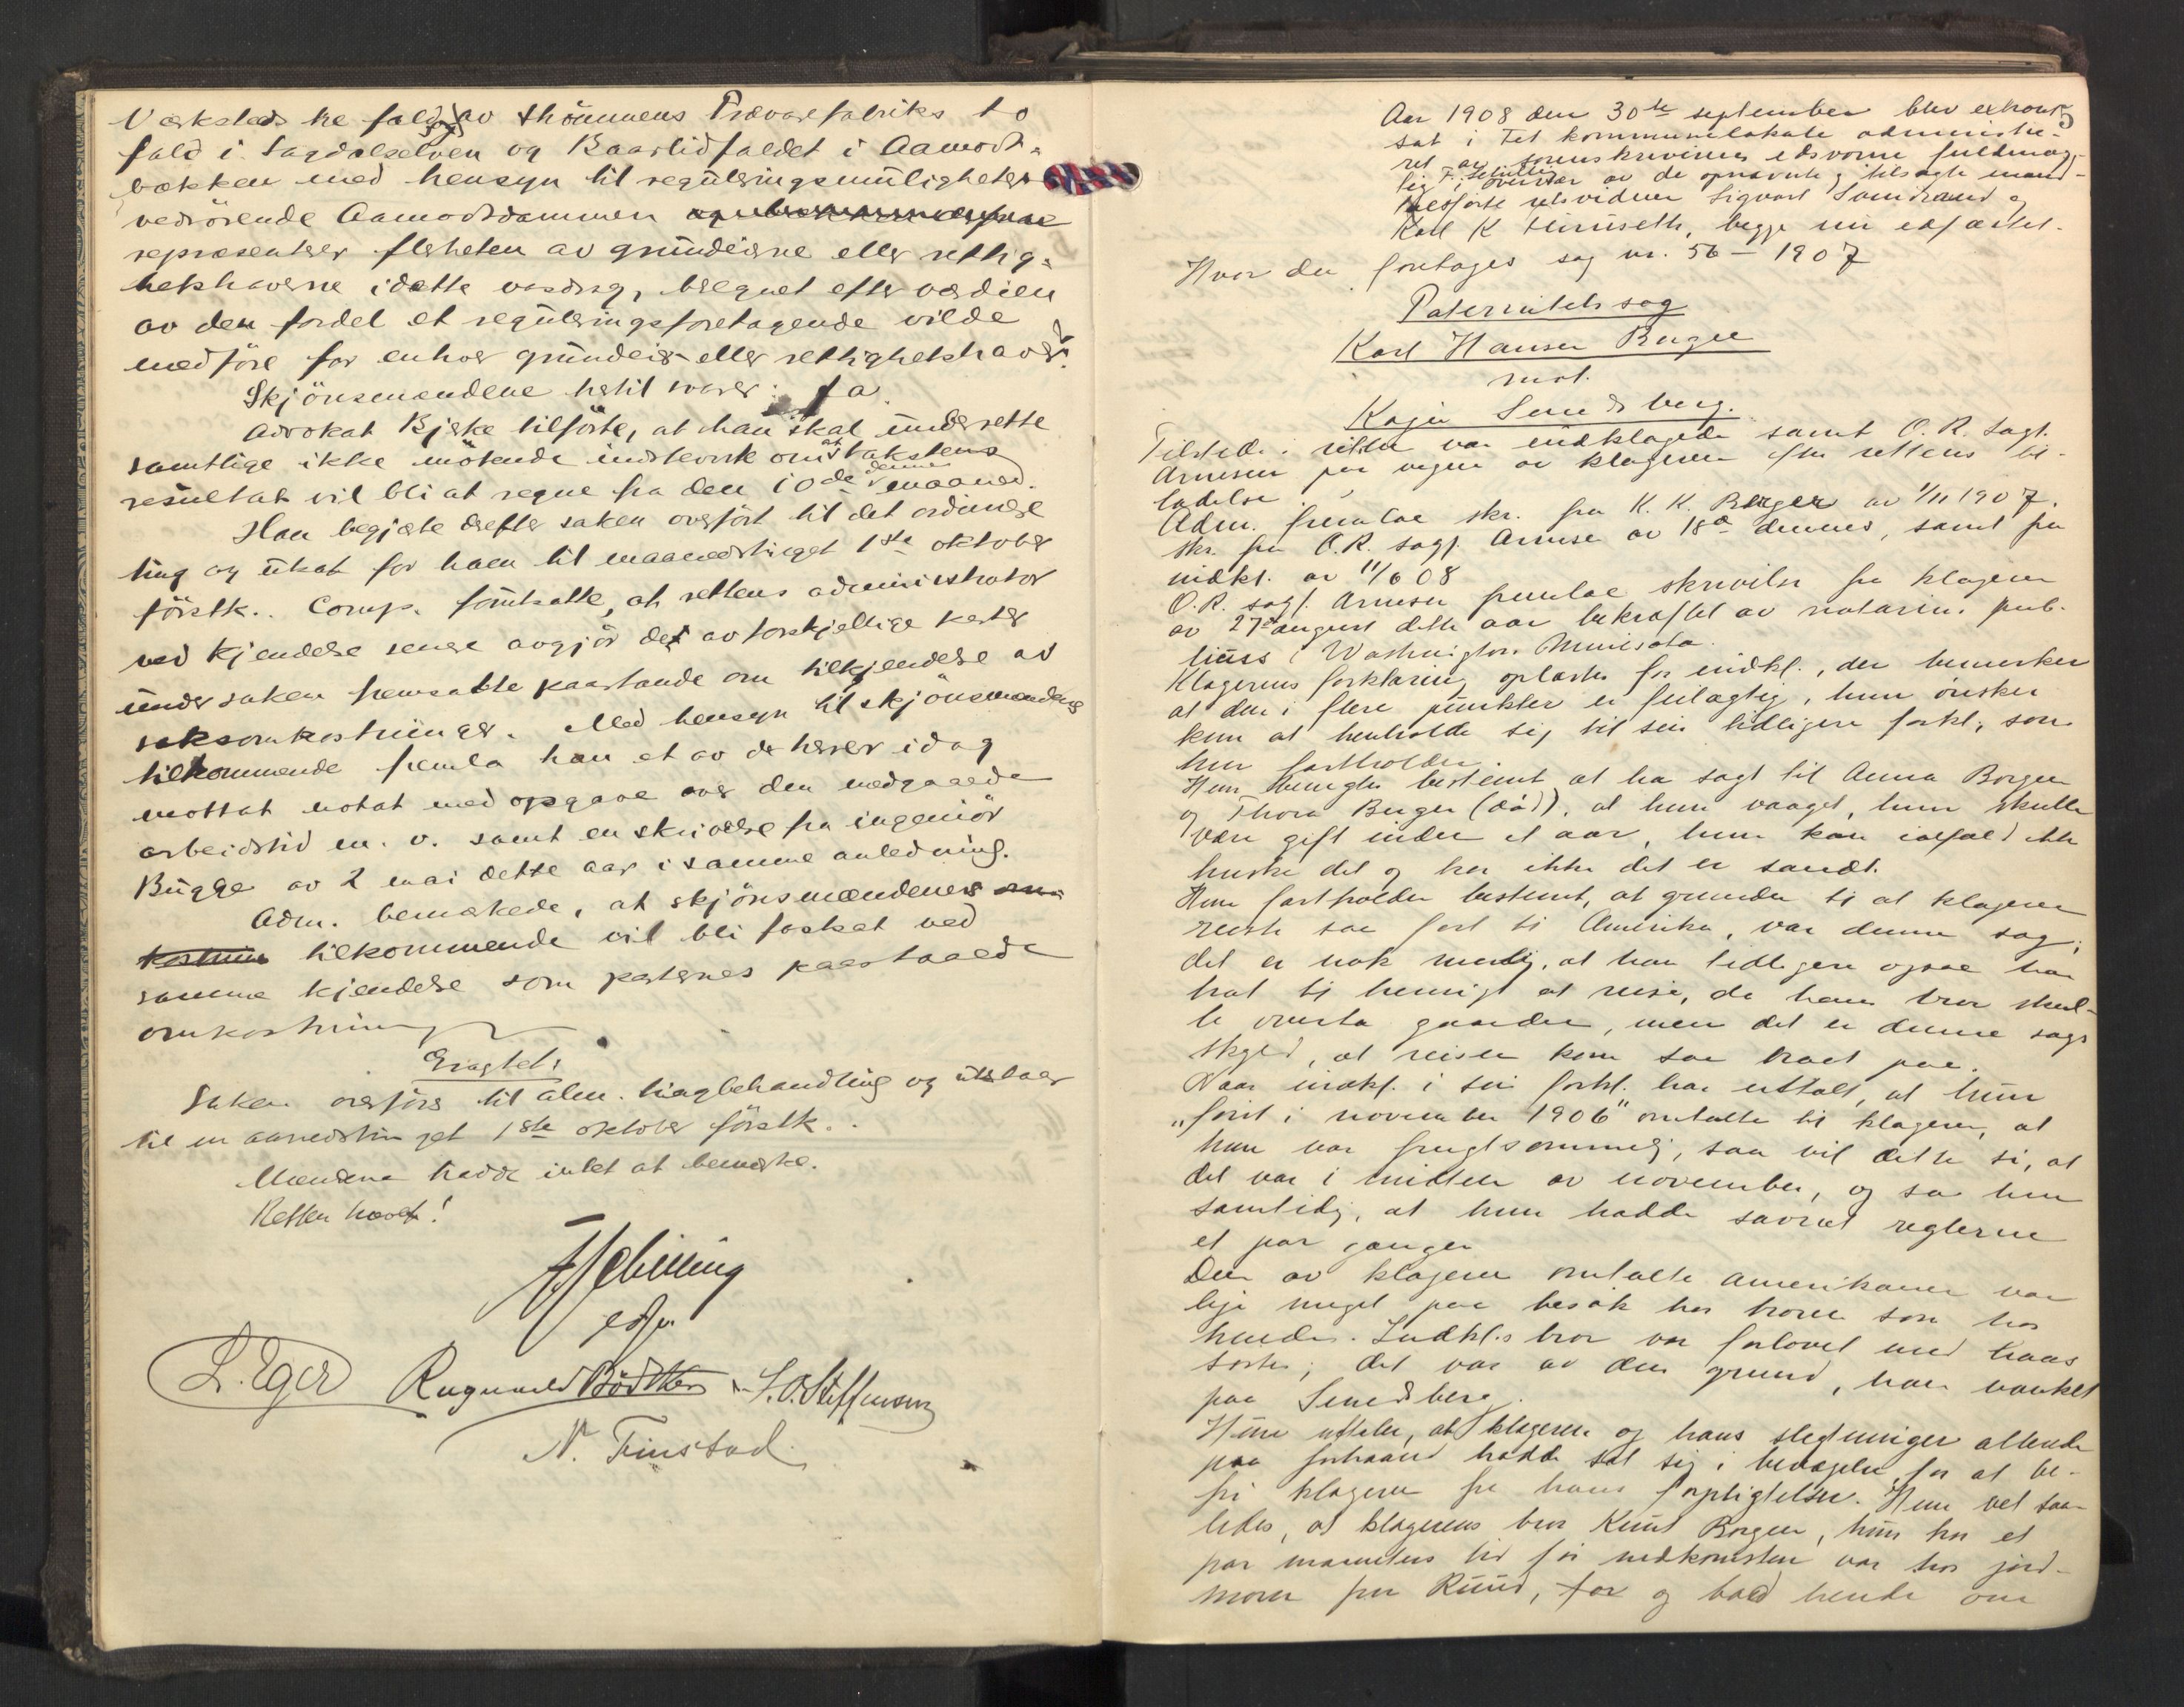 Verksteds tre fald, og av Thönnens Trævarefabriks to
fald i Sagdalselven og Baastidfaldet i Aamodt-
bækken med hensyn til reguleringsmuligheter
vedrörende Aamodtdammen
repræsenterer flerheten av grundeierne eller rettig-
hetshaverne i dette vasdrag, beregnet efter værdien
av den fordel et reguleringsforetagende vilde
medföre for enhver grundeier eller rettighetshaver?
Skjönsmændene hertil svarer: Ja.
Advokat Bjerke tilförte, at han skal underrette
samtlige ikke mötende indstevnte om at takstens
resultat vil bli at regne fra den 10de denne maaned.
Han begjærte derefter saken overfört til det ordinære
ting og utsat for ham til maanedstinget 1ste oktober
förstk.. Comp. forutsatte, at rettens administrator
ved kjendelse senere avgjör de av forskjellige parter
under saken fremsatte paastande om tilkjendelse av
saksomkostninger. Med hensyn til skjönsmændenes
tilkommende fremla han et av de herrer idag
mottat notat med opgave over den medgaaede
arbeidstid m. v. samt en skrivelse fra ingeniör
Bugge av 2 mai dette aar i samme anledning.
Adm. bemerkede, at skjönsmændenes om-
kostnin tilkommende vil bli fastsat ved
samme kjendelse som parternes paastaaede
omkostninger
Eragtet:
Saken overföres til alm. tingbehandling og utstaar
til maanedstinget 1ste oktober förstk..
Mændene hadde intet at bemerke.
Retten hævet!
F Schilling
edsv.
L. Eger Ragnvald Bödtker S. O. Steffensen
N. Finstad.
5
Aar 1908 den 30te september blev extraret
sat i Tet kommunelokale administre-
ret av sorenskriverens edsvorne fuldmæg-
tig F. Schilling i overvær av de opnævnte og tilsagte mand-
talsförte retsvidner Sigvart Sundrand og
Karl K Huruseth, begge nu edfæstet.
Hvor da foretages sag nr. 56 – 1907
Paternitetssag
Karl Hansen Bergee
mot.
Kaja Sendsberg.
Tilstede i retten var indklagede samt O. R. sagf.
Arnesen paa vegne av klageren efter rettens til-
ladelse
Adm. fremlae skr. fra K. K. Berger av 1/11 1907.
skr. fra O.R. sagf. Arnesen av 18de dennes, samt fra
indkl. av 11/6 08
O.R. sagf. Arnesen fremlae skrivelse fra klageren
av 27de august dette aar bekræftet av notarius pub-
licuss i Washington Minisota.
Klagerens forklaring oplæstes for indkl., der bemerker
at den i flere punkter er feilagtig, hun ønsker
kun at henholde sig til sin tidligere forkl., som
hun fastholder.
Hun benegter bestemt at ha sagt til Anna Borgen
og Thora Berger (død), at hun vaaget, hun skulle
være gift inden et aar, hun kan ialfald ikke
huske det og tror ikke det er sandt.
Hun fastholder bestemt, at grunden til at klageren
reiste saa fort til Amerika, var denne sag;
det er nok mulig, at han tidligere ogsaa har
hat til hensigt at reise, da hans bror skul-
le overta gaarden, men det er denne sags
skyld, at reisen kom saa brat paa.
Naar indkl. i sin forkl. har uttalt, at hun
"först i november 1906" omtalte til klageren, at
hun var frugtsommelig, saa vil dette si, at
det var i midten av november, og sa hun
samtidig, at hun hadde savnet reglerne
et par ganger
Den av klageren omtalte Amerikaner var
like meget paa besøk hos broren som hos
hende. Indkl.s bror var forlovet med hans
søster; det var av den grund, han vanket
paa Sendsberg.
Hun uttaler, at klageren og hans slegtninger allerede
paa forhaand hadde sat sig i bevægelse for at be-
fri klageren fra hans forpligtelser. Hun vet saa-
ledes, at klagerens bror Knut Borgen, hun for et
par maaneders tid før nedkomsten var hos jord-
moren fru Ruud, for og bad hende om